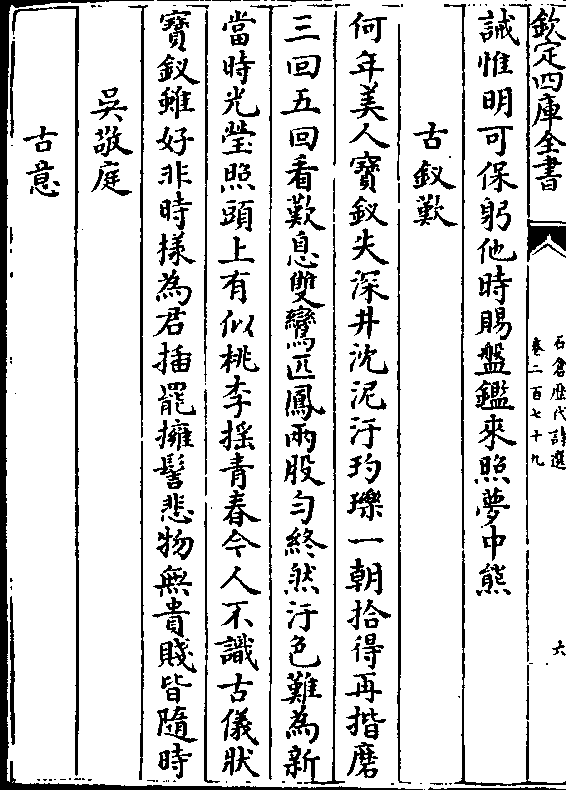 欽定四庫全書
石倉厯代詩選
卷二百七十九
六
誡惟明可保躬他時賜盤鑑來照夢中熊
古釵歎
何年美人寶釵失深井沈泥汙玓瓅一朝拾得再揩磨
三回五回看歎息雙鸞匹鳳兩股勻終然汙色難為新
當時光瑩照頭上有似桃李揺青春今人不識古儀狀
寶釵雖好非時様為君插罷擁髻悲物無貴賤皆隨時
吳敬庭
古意